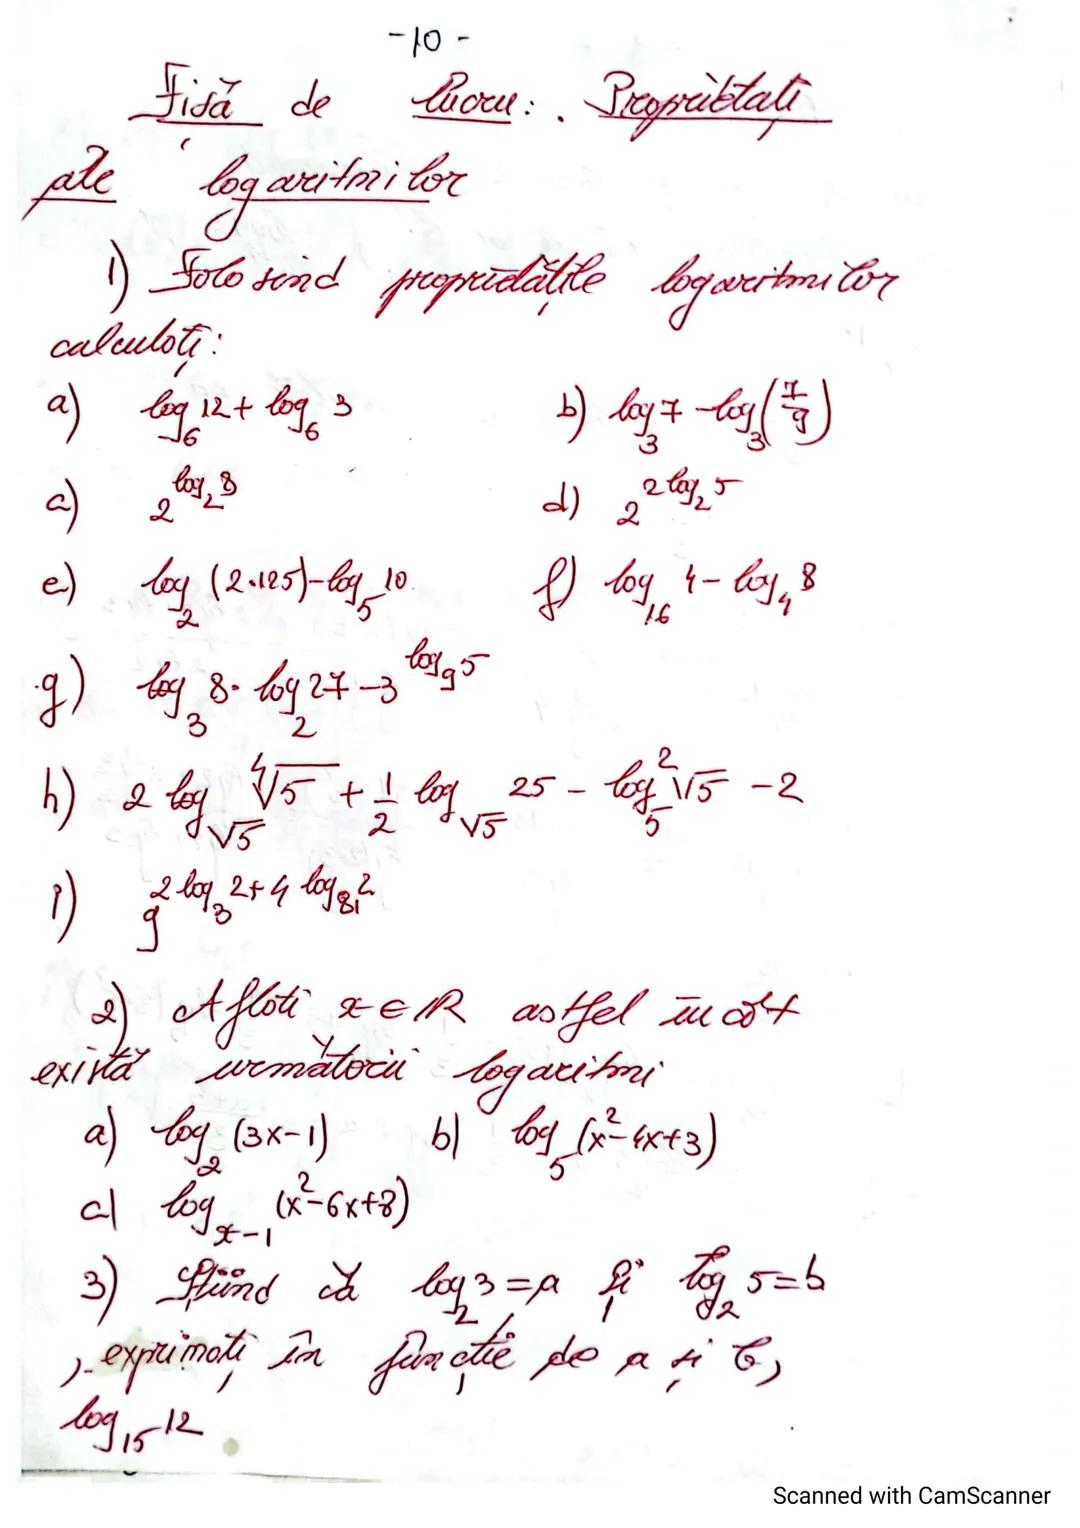 -10-
Fișă de lucru: Proprietăți
ale logaritmilor
1) Folosind proprietățile logaritmilor
calculați:
a) log₆ 12 + log₆ 3 b) log₃ 7 - log₃ (7/9)
c) 2^(log₂ 8) d) 2^(2 log₂ 5)
e) log₂ (2·125) - log₅ 10 f) log₁₆ 4 - log₄ 8
g) log₃ 8 · log₂ 27 - 3^(log₉ 5)
h) 2 log_√5 ∜5 + 1/2 log_√5 25 - log₅² √5 - 2
i) 9^(2 log₃ 2 + 4 log₈₁ 2)
2) Aflați x ∈ ℝ astfel încât
există următorii logaritmi
a) log₂ (3x-1) b) log₅ (x²-4x+3)
c) log_(x-1) (x²-6x+8)
3) Știind că log₂ 3 = a și log₂ 5 = b
, exprimați în funcție de a și b,
log₁₅ 12
Scanned with CamScanner